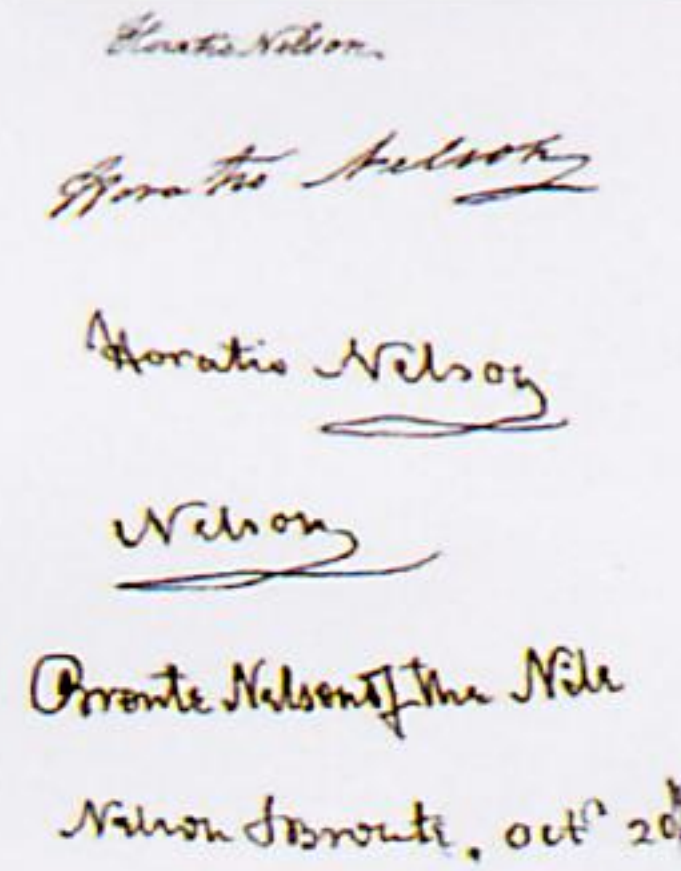 Horatio Nelson.
Horatio Nelson
Horatio Nelson
Nelson
Bronte Nelson of the Nile
Nelson & Bronte. octr 20th